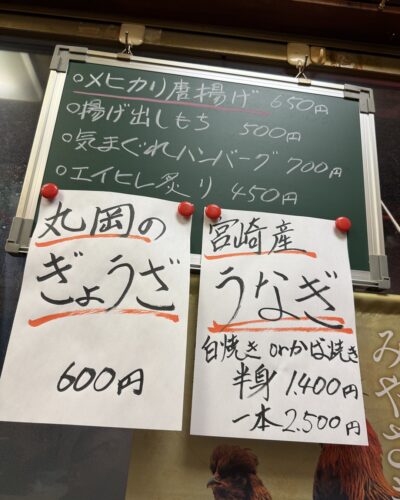 ○メヒカリ唐揚げ 650円
○揚げ出しもち 500円
○気まぐれハンバーグ 700円
○エイヒレ炙り 450円
丸岡の
ぎょうざ
600円
宮崎産
うなぎ
白焼き orかば焼き
半身 1.400円
一本 2.500円
みやざき